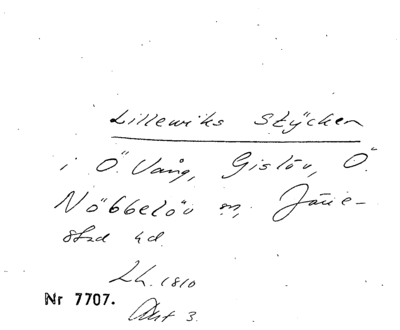 Lillewiks Stÿcken
i Ö. Vång, Gislöv, Ö.
Nöbbelöv m, Järre-
stad hd.
Lh. 1810
Nr 7707.
Akt 3.